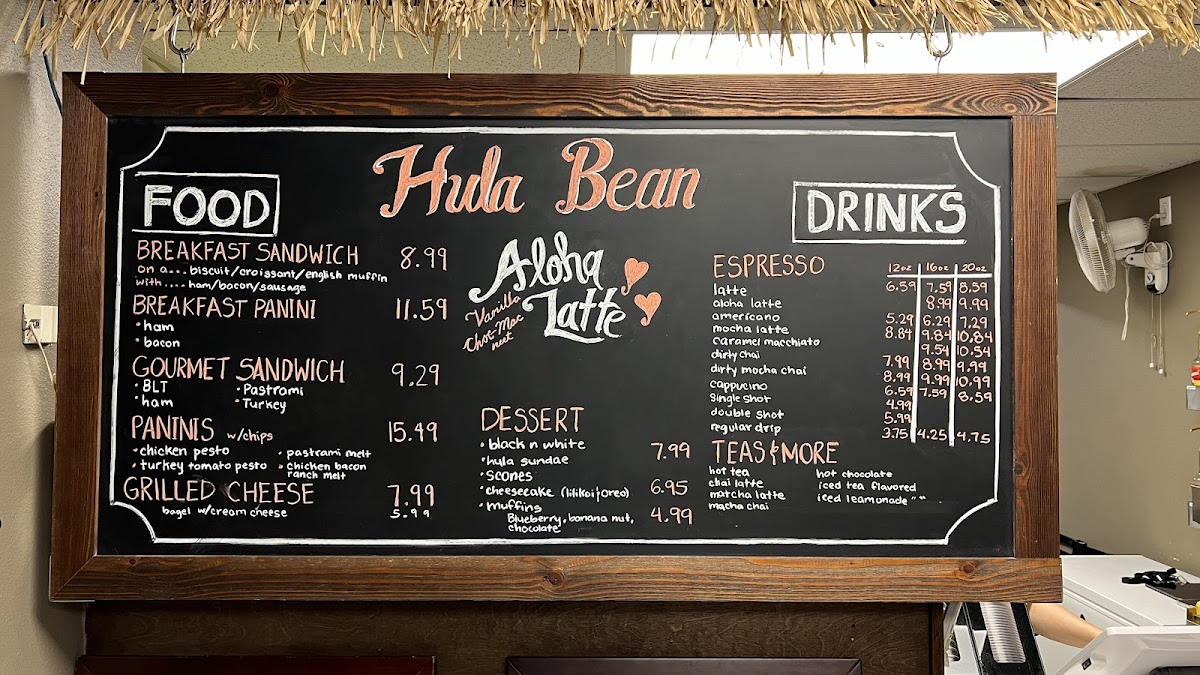 Hula Bean
FOOD
BREAKFAST SANDWICH 8.99
on a... biscuit/croissant/english muffin
with.... ham/bacon/sausage
BREAKFAST PANINI 11.59
• ham
• bacon
GOURMET SANDWICH 9.29
• BLT • Pastrami
• ham • Turkey
PANINIS w/chips 15.49
• chicken pesto • pastrami melt
• turkey tomato pesto • chicken bacon
ranch melt
GRILLED CHEESE 7.99
bagel w/cream cheese 5.99
Aloha
Latte
Vanilla
Choc-Mac
nut
DESSERT
• black n white 7.99
• hula sundae
• scones
• cheesecake (lilikoi/oreo) 6.95
• muffins 4.99
Blueberry, banana nut,
chocolate
DRINKS
ESPRESSO 12oz 16oz 20oz
latte 6.59 7.59 8.59
aloha latte 8.99 9.99
americano 5.29 6.29 7.29
mocha latte 8.84 9.84 10.84
caramel macchiato 9.54 10.54
dirty chai 7.99 8.99 9.99
dirty mocha chai 8.99 9.99 10.99
cappucino 6.59 7.59 8.59
single shot 4.99
double shot 5.99
regular drip 3.75 4.25 4.75
TEAS & MORE
hot tea hot chocolate
chai latte iced tea flavored
matcha latte iced leamonade " "
macha chai